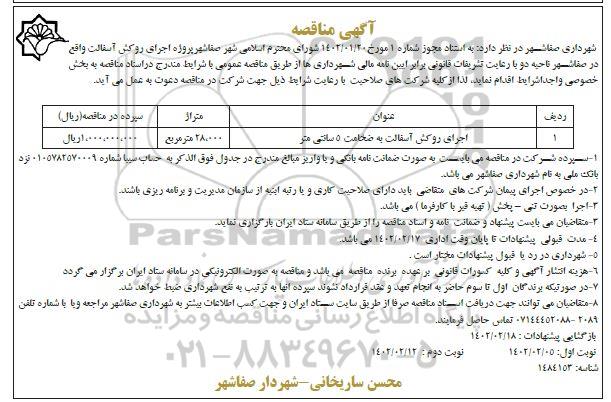 آگهی مناقصه
شهرداری صفاشهر در نظر دارد: به استناد مجوز شماره ۱ مورخ ۱۴۰۲/۰۱/۲۰ شورای محترم اسلامی شهر صفاشهرپروژه اجرای روکش آسفالت واقع
در صفاشهر ناحیه دو با رعایت تشریفات قانونی برابر ایین نامه مالی شهرداری ها از طریق مناقصه عمومی با شرایط مندرج دراسناد مناقصه به بخش
خصوصی واجدالشرایط اقدام نماید، لذا از کلیه شرکت های صلاحیت با رعایت شرایط ذیل جهت شرکت در مناقصه دعوت به عمل می آید.
ردیف عنوان متراژ سپرده در مناقصه(ریال)
۱ اجرای روکش آسفالت به ضخامت ۵ سانتی متر ۲۸،۰۰۰ مترمربع ۱،۰۰۰،۰۰۰،۰۰۰ریال
۱-سپرده شرکت در مناقصه می بایست به صورت ضمانت نامه بانکی و یا واریز مبالغ مندرج در جدول فوق الذکر به حساب سیبا شماره ۰۱۰۵۷۸۲۵۷۰۰۰۹ نزد
بانک ملی به نام شهرداری صفاشهر می باشد.
۲-در خصوص اجرای پیمان شرکت های متقاضی باید دارای صلاحیت کاری و یا رتبه ابنیه از سازمان مدیریت و برنامه ریزی باشند.
۳-اجرا بصورت تنی – پخش ( تهیه قیر با کارفرما ) می باشد.
۳-متقاضیان می بایست پیشنهاد و ضمانت نامه و اسناد مناقصه را از طریق سامانه ستاد ایران بارگزاری نماید.
۴- مدت قبولی پیشنهادات تا پایان وقت اداری ۱۴۰۲/۰۲/۱۷ می باشد.
۵- شهرداری در رد یا قبول پیشنهادات مختار است .
۶-هزینه انتشار آگهی و کلیه کسورات قانونی بر عهده برنده مناقصه می باشد و مناقصه به صورت الکترونیکی در سامانه ستاد ایران برگزار می گردد
۷-در صورتیکه برندگان اول تا سوم حاضر به انجام تعهد و عقد قرارداد نشوند سپرده انها به ترتیب به نفع شهرداری ضبط خواهد شد.
۸-متقاضیان می توانند جهت دریافت اسناد مناقصه صرفا از طریق سایت ستاد ایران و جهت کسب اطلاعات بیشتر به شهرداری صفاشهر مراجعه ویا با شماره تلفن
۲۰۸۹ -۰۷۱۴۴۴۵۲۰۸۸ تماس حاصل فرمایند.
بازگشایی پیشنهادات : ۱۴۰۲/۰۲/۱۸
نوبت اول: ۱۴۰۲/۰۲/۰۵ نوبت دوم : ۱۴۰۲/۰۲/۱۲
شناسه: ۱۴۸۴۱۵۳
محسن ساریخانی-شهردار صفاشهر
ParsNamadData
پایگاه اطلاع رسانی مناقصه و مزایده
۰۲۱-۸۸۳۴۹۶۷۰-۵